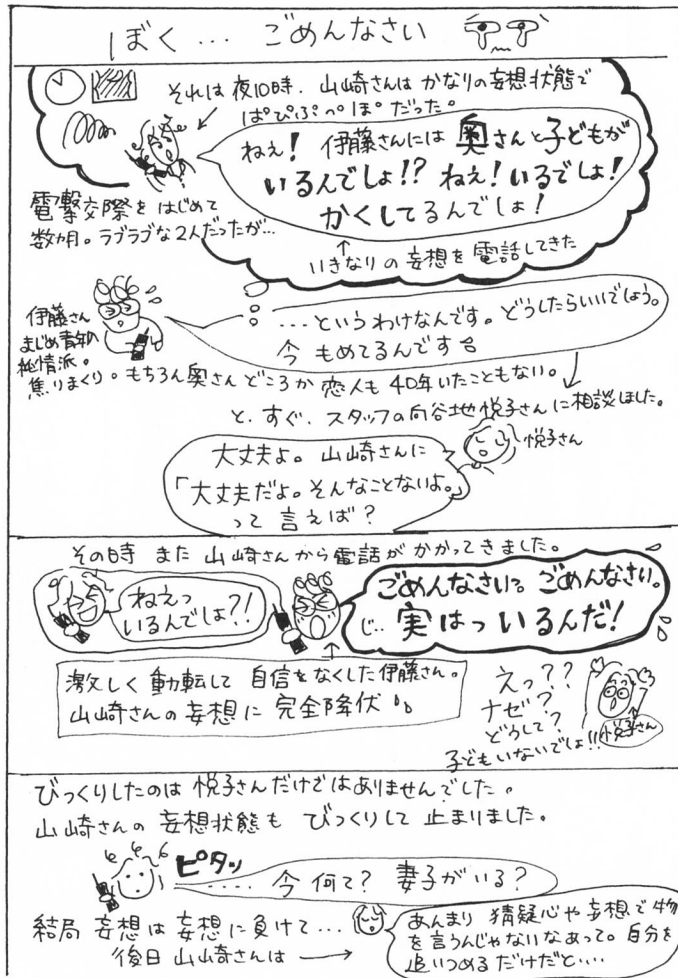 ぼく… ごめんなさい
それは夜10時、山崎さんはかなりの妄想状態で
ぱぴぷっぺぽだった。
ねぇ！伊藤さんには奥さんと子どもが
いるんでしょ!? ねぇ！いるでしょ！
かくしてるんでしょ！
電撃交際をはじめて
数カ月。ラブラブな2人だったが…
いきなりの妄想を電話してきた
伊藤さん
まじめ青年の
純情派。
焦りまくり。もちろん奥さんどころか恋人も40年いたこともない。
…というわけなんです。どうしたらいいでしょう。
今もめてるんです
と、すぐ、スタッフの向谷地悦子さんに相談しました。
悦子さん
大丈夫よ。山崎さんに
「大丈夫だよ。そんなことないよ。
って言えば？
その時また山崎さんから電話がかかってきました。
ねえっ
いるんでしょ?!
ごめんなさい。ごめんなさい。
じ…実はっいるんだ！
激しく動転して自信をなくした伊藤さん。
山崎さんの妄想に完全降伏
えっ？？
ナゼ？
どうして？
子どもいないでしょ!!
悦子さん
びっくりしたのは悦子さんだけではありませんでした。
山崎さんの妄想状態もびっくりして止まりました。
ピタッ
……今何て？妻子がいる？
結局妄想は妄想に負けて…
後日山崎さんは
あんまり猜疑心や妄想で物
を言うんじゃないなあって。自分を
追いつめるだけだと‥‥